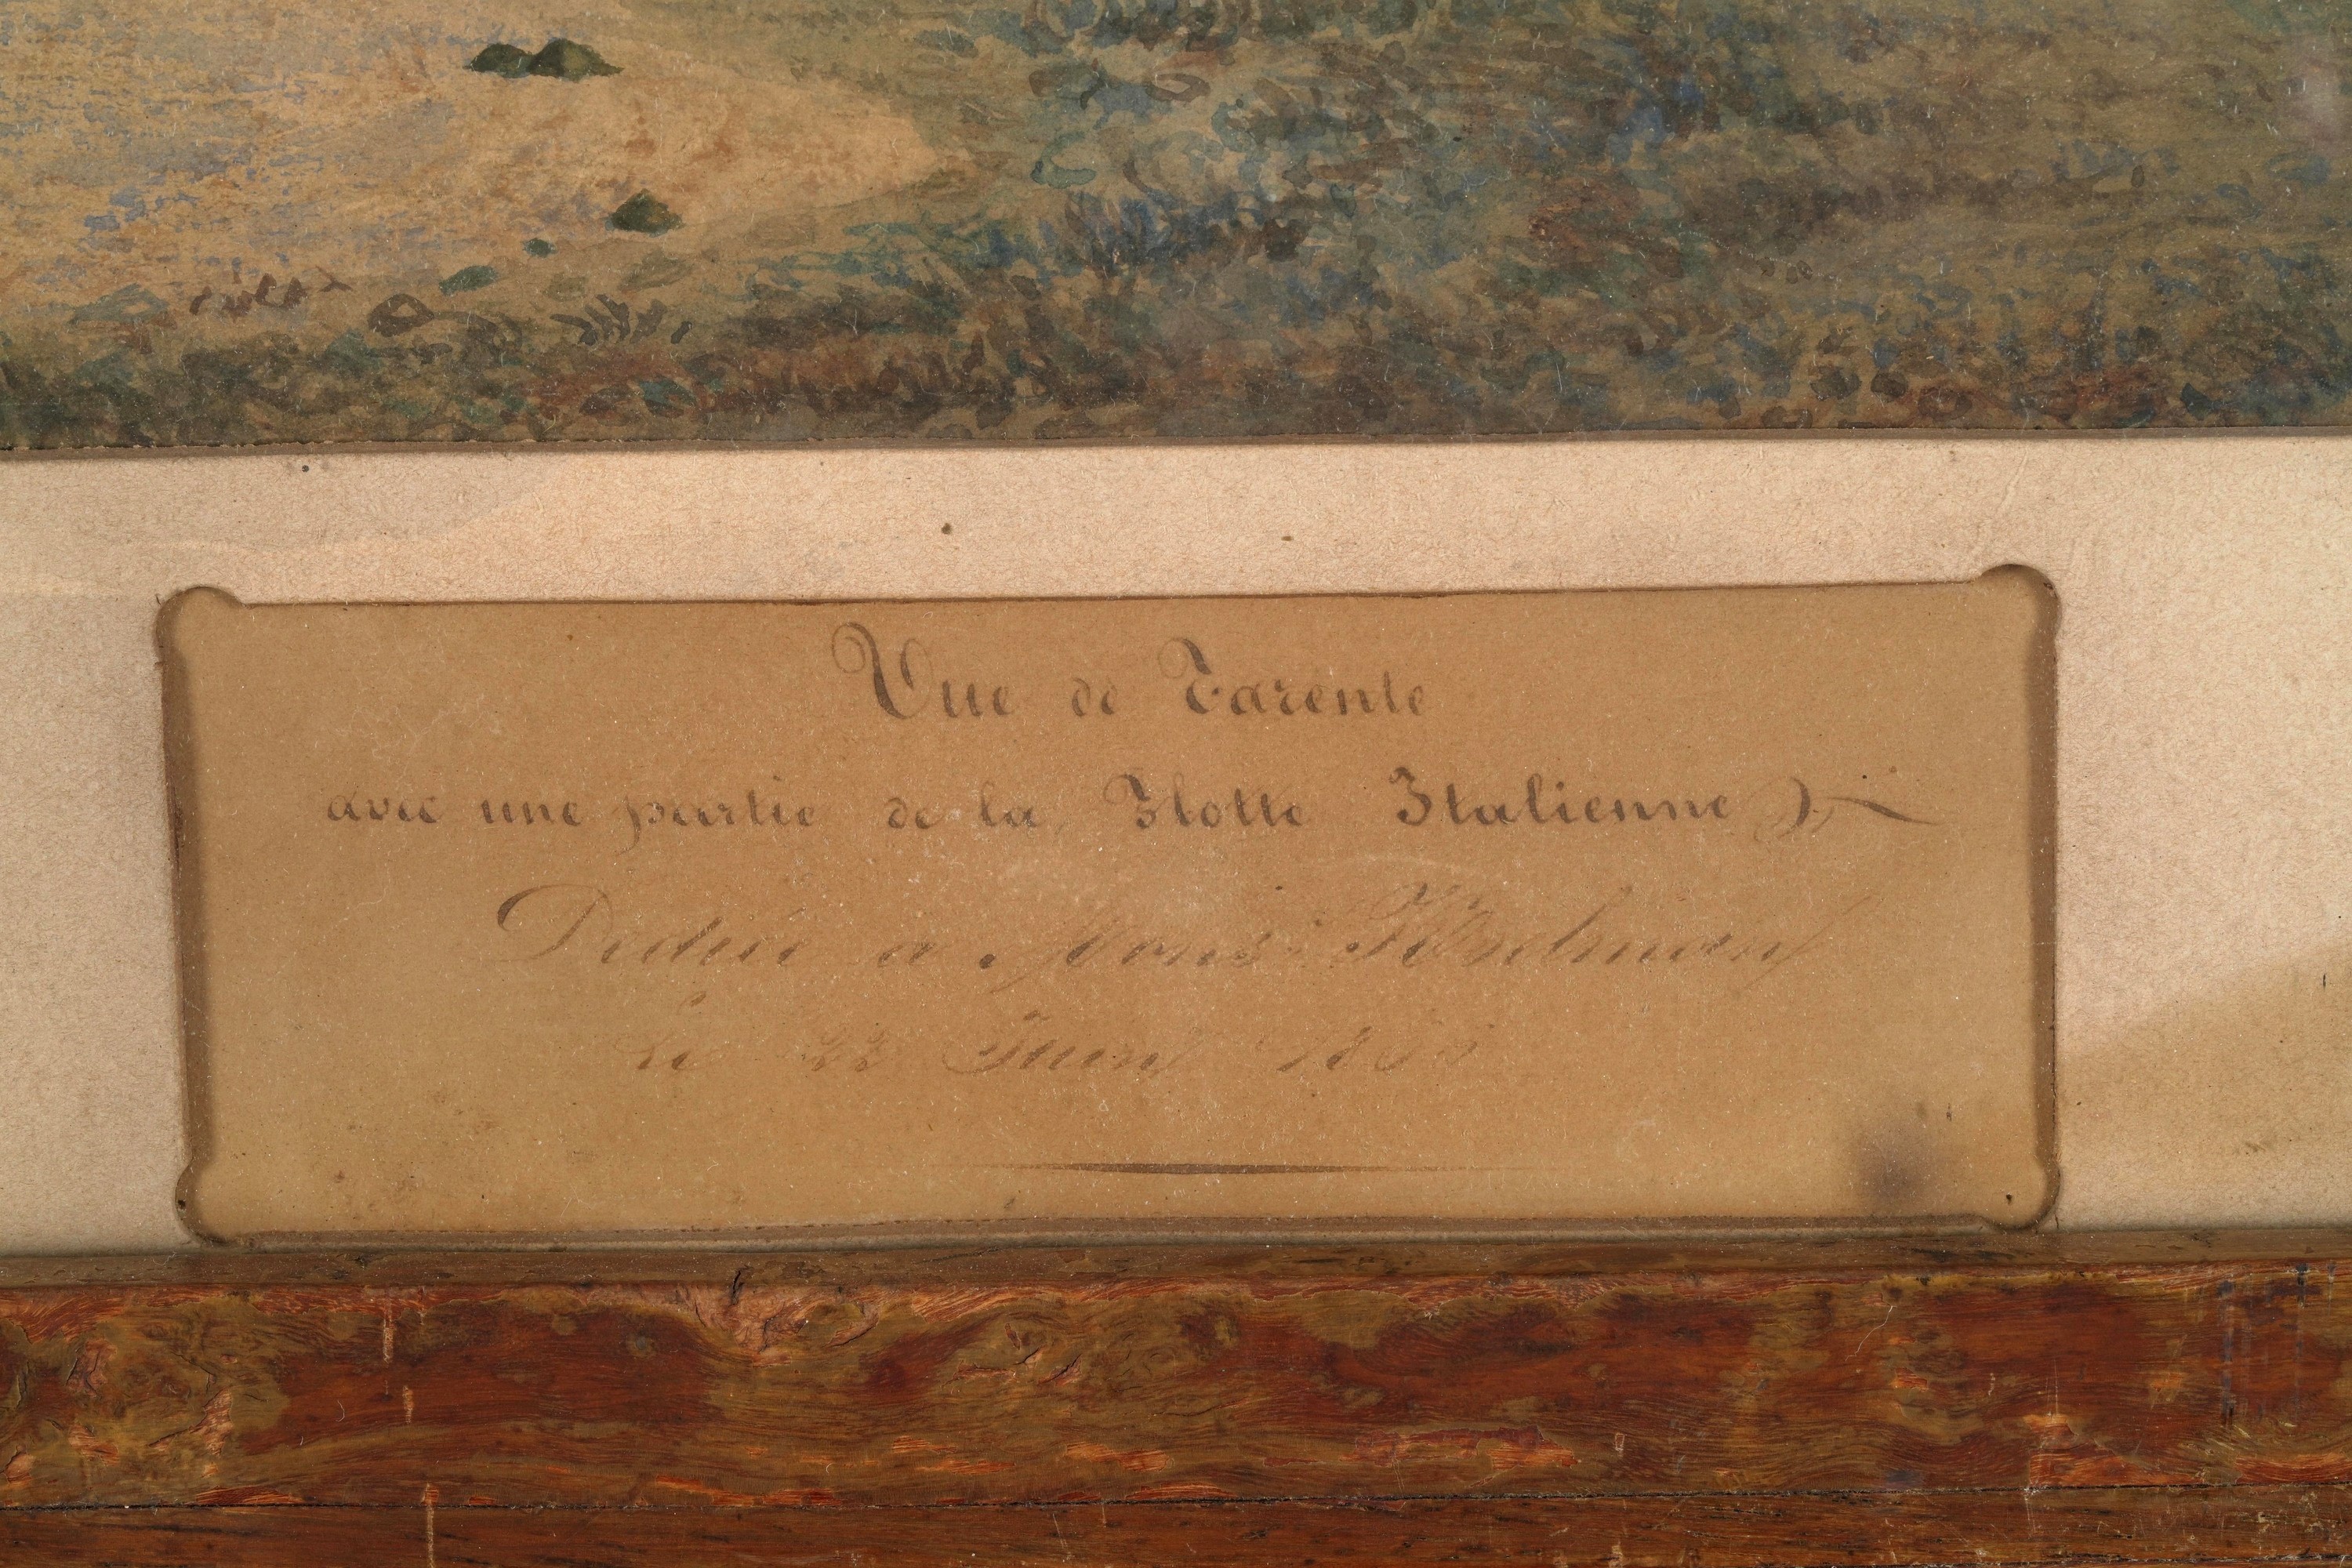 Vue de Tarente
avec une partie de la Flotte Italienne
Dédiée a Mons:
Le Juin